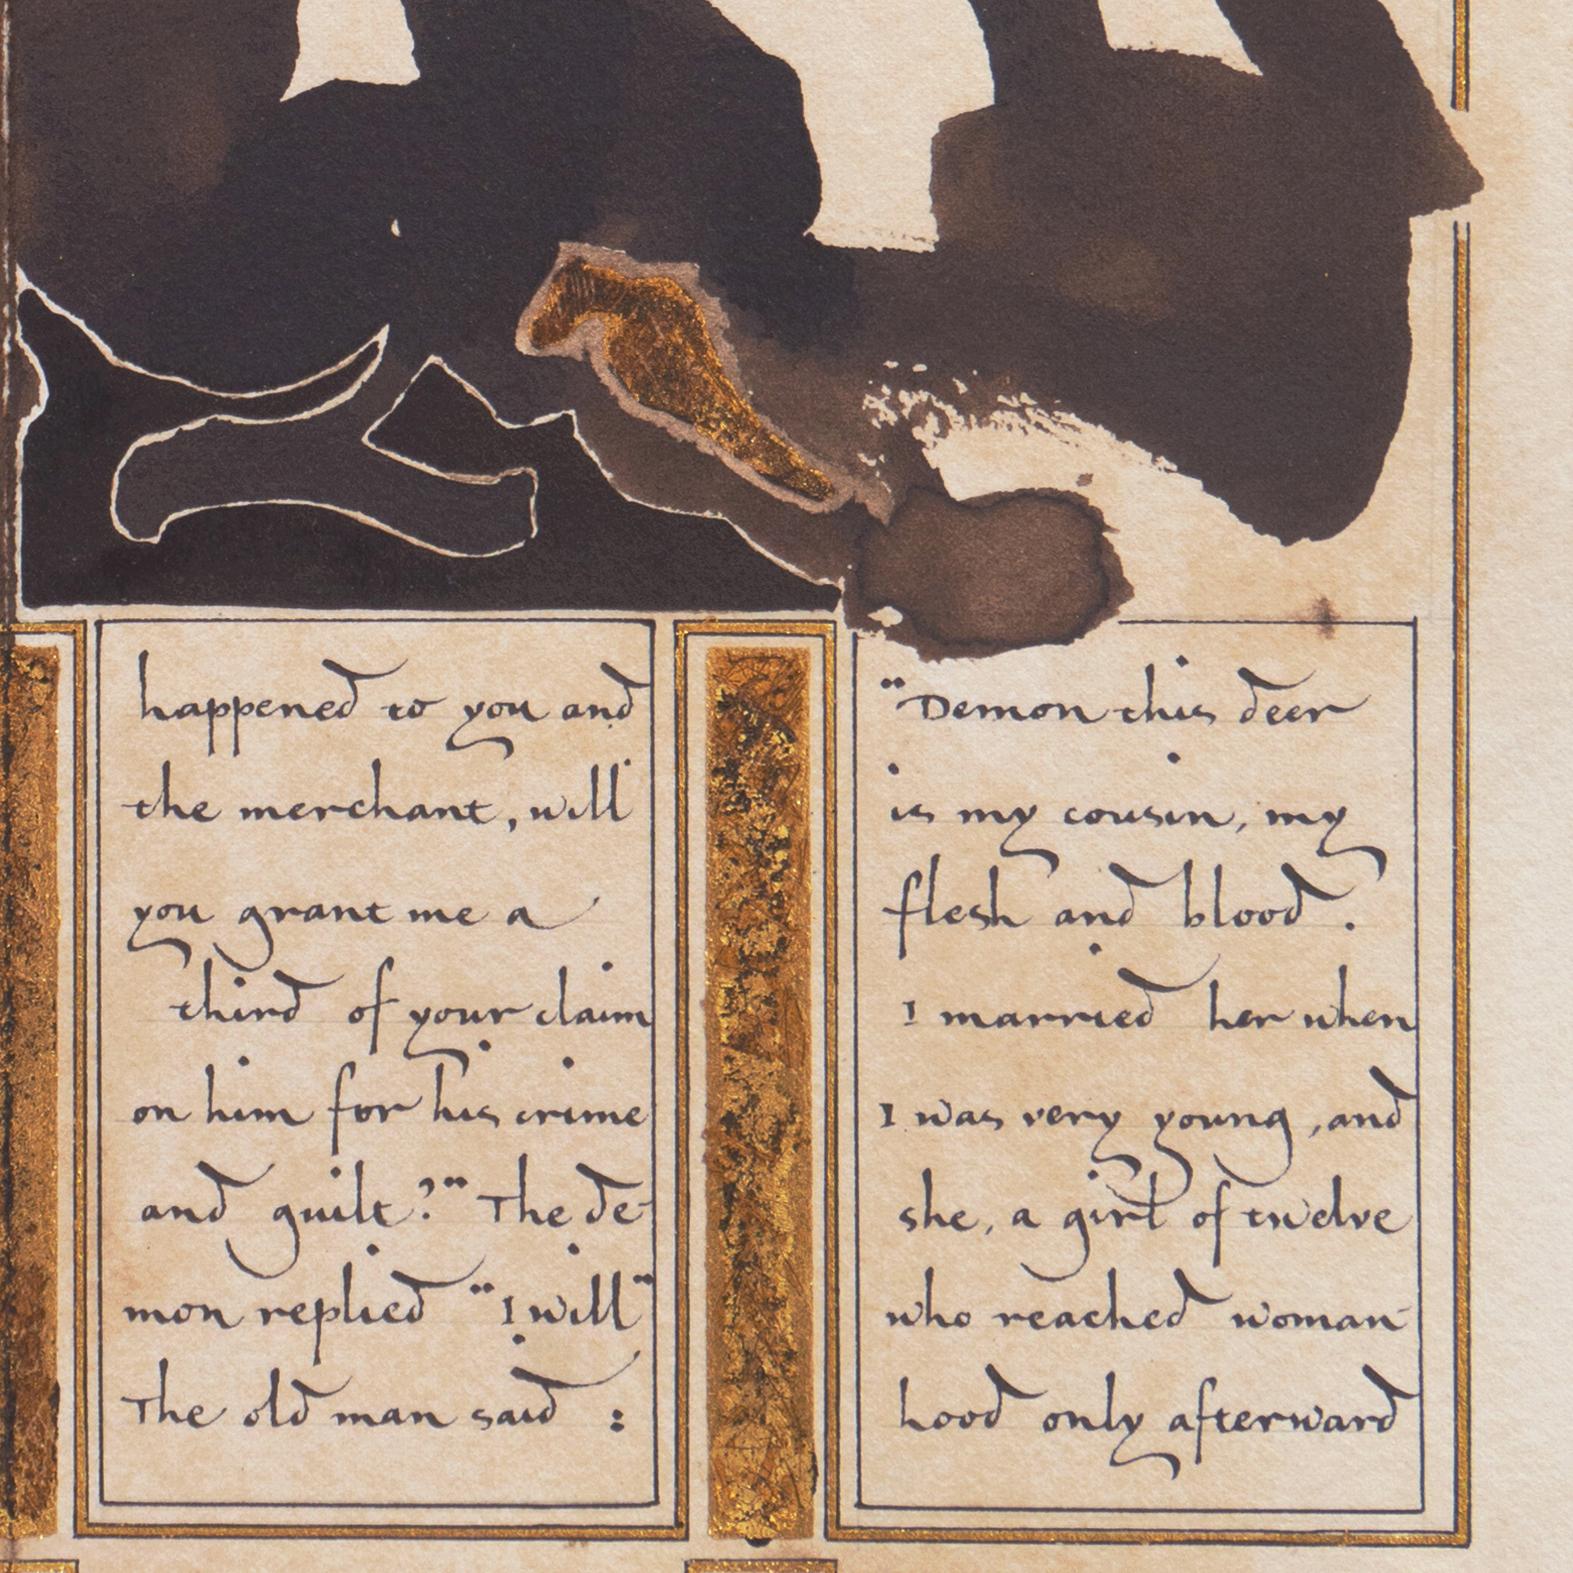 happened to you and
the merchant, will
you grant me a
third of your claim
on him for his crime
and guilt?" The de-
mon replied "I will"
The old man said :
"Demon this deer
is my cousin, my
flesh and blood.
I married her when
I was very young, and
she, a girl of twelve
who reached woman-
hood only afterward